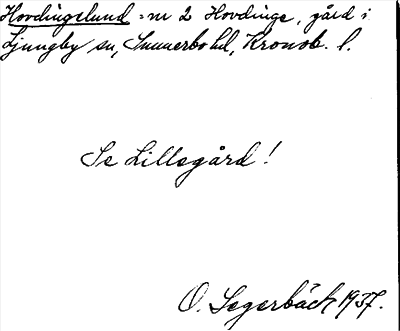 Hovdingslund = nr 2 Hovdinge, gård i
Ljungby sn, Sunnerbo hd, Kronob. l.
Se Lillegård!
O. Segerbäck 1937.